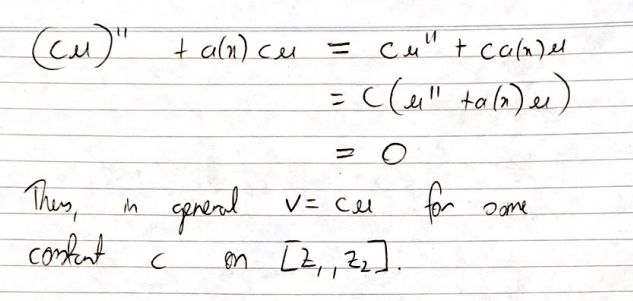 (cu)'' + a(x) cu = cu'' + ca(x)u
= c(u'' + a(x)u)
= 0
Thus, in general v = cu for some
constant c on [z₁, z₂].